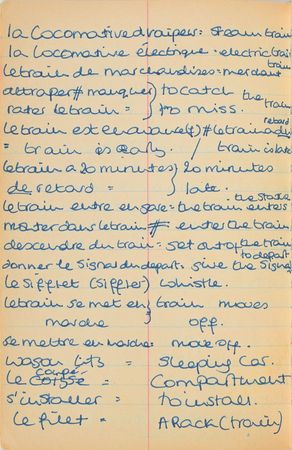 la Locomotive à vapeur: steam train
la Locomotive électrique = electric train
le train de marchandises = merchant train
attraper # manquer } to catch the train
rater le train = } to miss.
le train est en avance (≠) # le train a du retard
= train is early. / train is late
le train a 20 minutes } 20 minutes
de retard = } late.
le train entre en gare = the train enters the station
monter dans le train # enter the train
descendre du train = get out of the train
donner le signal du depart = give the signal to depart
le Sifflet (Siffler) Whistle.
le train se met en } train moves
marche } off.
se mettre en marche = move off.
wagon lits = sleeping car.
le coupé = Compartment
s'installer = to install.
le filet = A Rack (train)